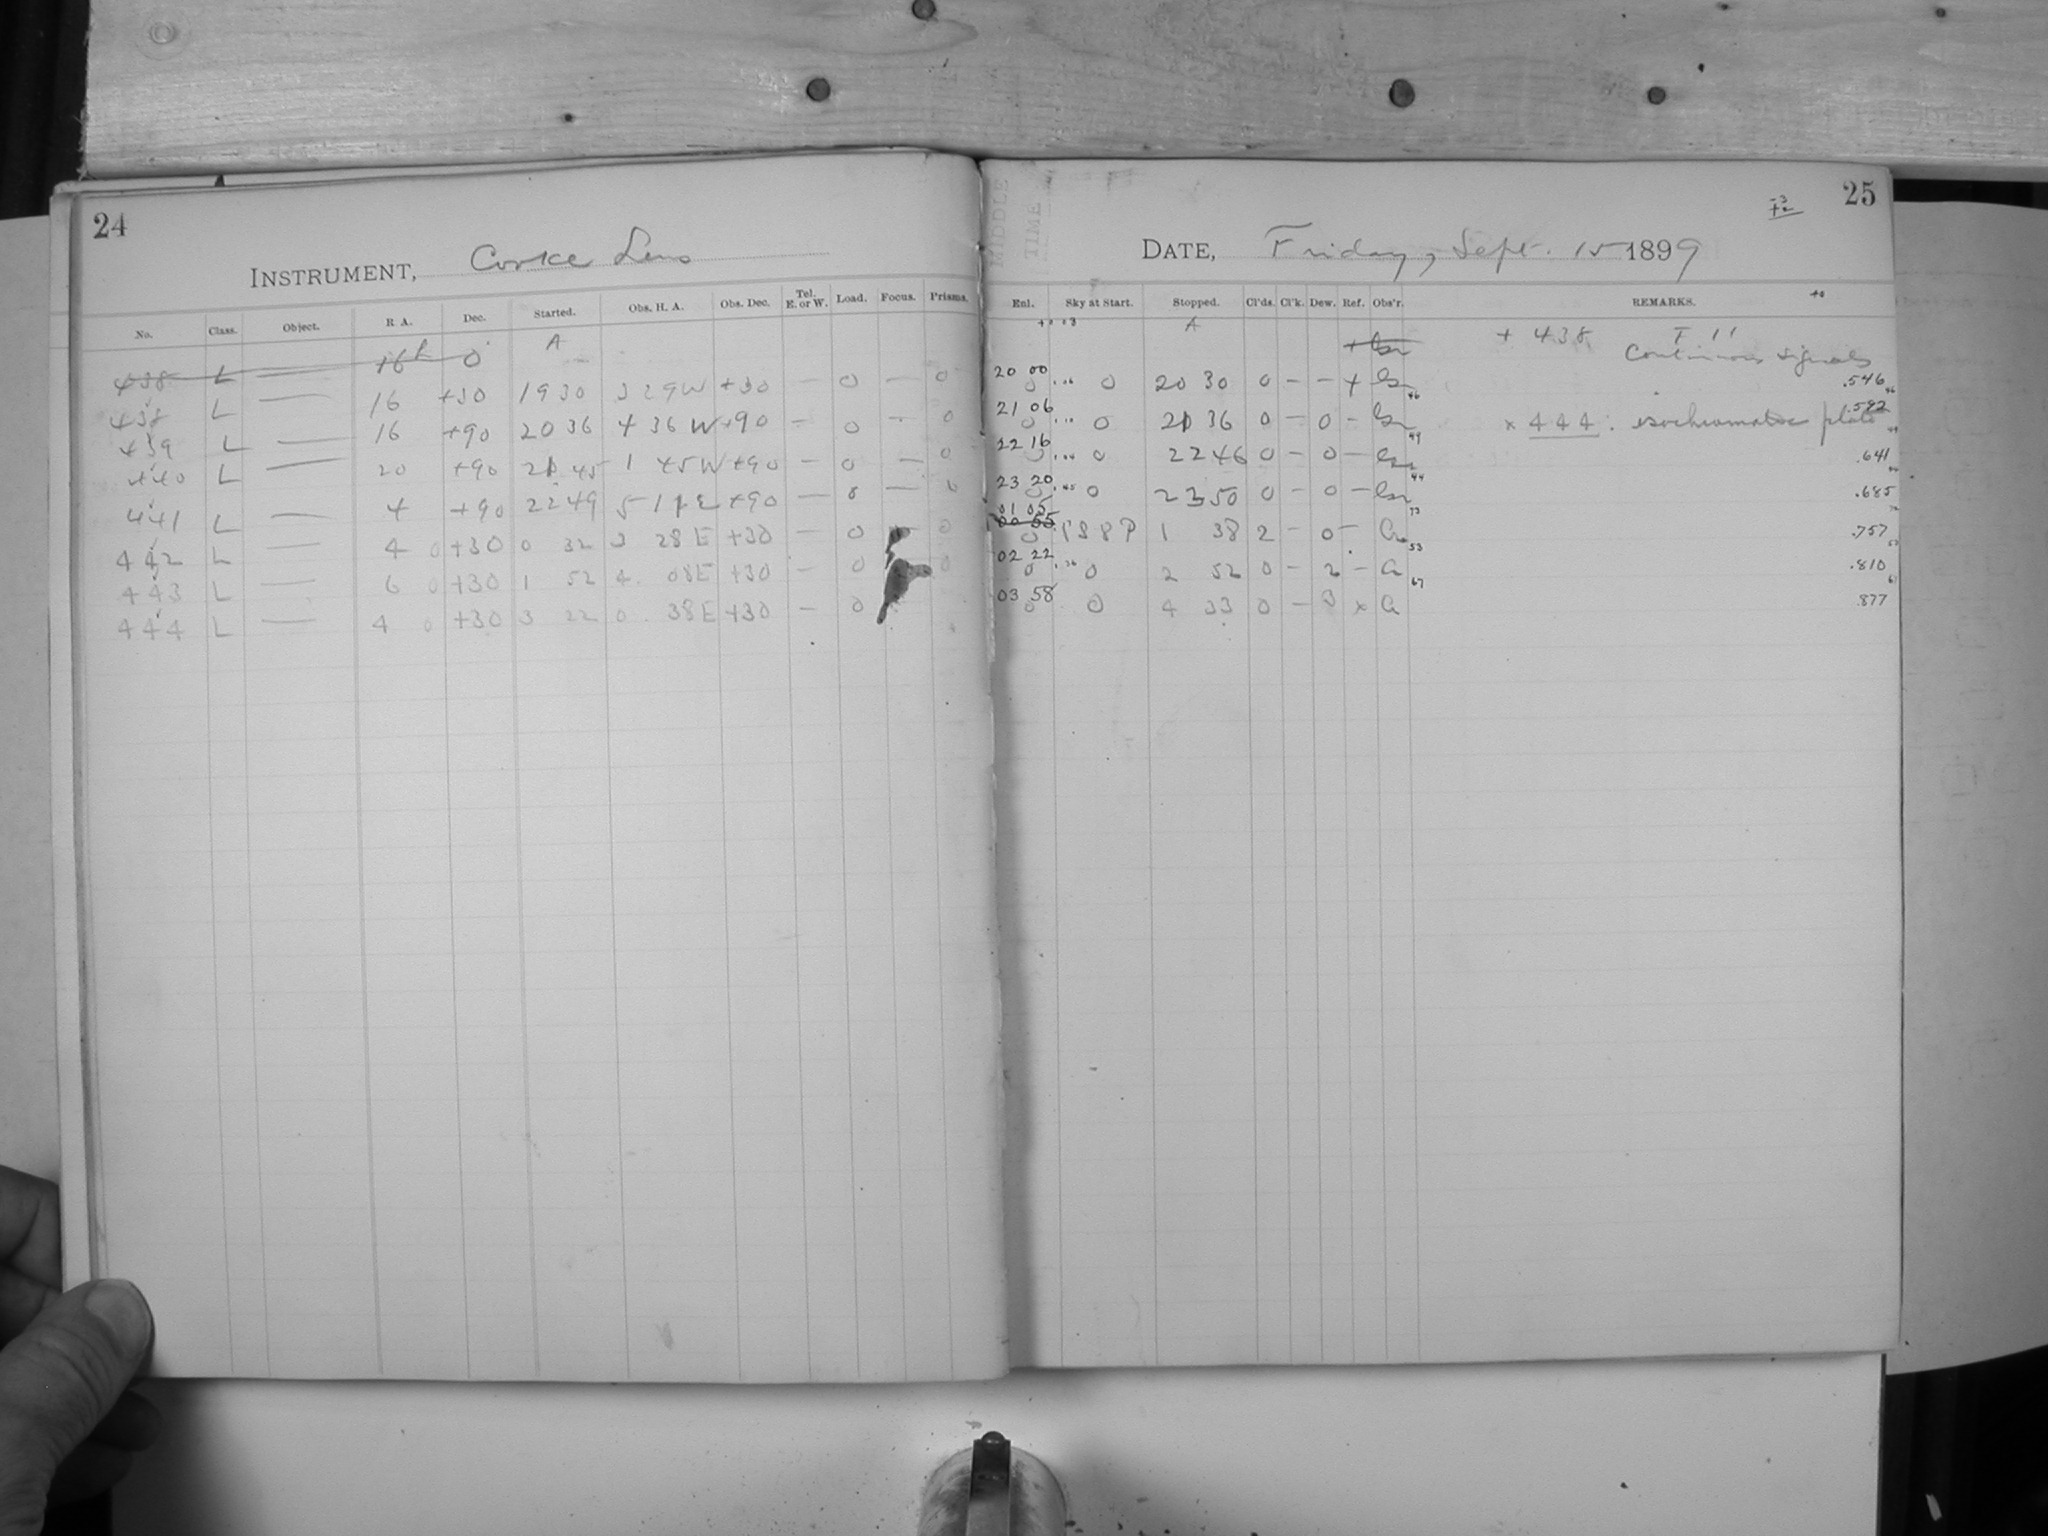 24
INSTRUMENT, Cooke Lens
No. Class. Object. R A. Dec. Started. Obs. H. A. Obs. Dec. Tel. E. or W. Load. Focus. Prisms.
A
438 L — 16h 0
438 L — 16 +30 19 30 3 29 W +30 — 0 — 0
439 L — 16 +90 20 36 4 36 W +90 — 0 - 0
440 L — 20 +90 21 45 1 45 W +90 — 0 — 0
441 L — 4 +90 22 49 5 11 E +90 — 0 — 0
442 L — 4 0 +30 0 32 3 28 E +30 — 0 0
443 L — 6 0 +30 1 52 4 08 E +30 — 0 0
444 L — 4 0 +30 3 22 0 38 E +30 — 0
MIDDLE
TIME
25
-3
+2
DATE, Friday, Sept. 15 1899
Enl. Sky at Start. Stopped. Cl'ds. Cl'k. Dew. Ref. Obs'r. REMARKS.
+0
A
+ 438 I 11
Continuous signals
20 00 0 0 20 30 0 — — + .546 46
21 06 0 0 21 36 0 — 0 — .592 49
× 444: isochromatic plate
22 16 0 0 22 46 0 — 0 — .641 44
23 20 0 0 23 50 0 — 0 — .685 72
01 05
00 55 0 1 38 2 — 0 — .757 53
02 22 0 0 2 52 0 — 2 — .810 67
03 58 0 0 4 33 0 — 3 × .877